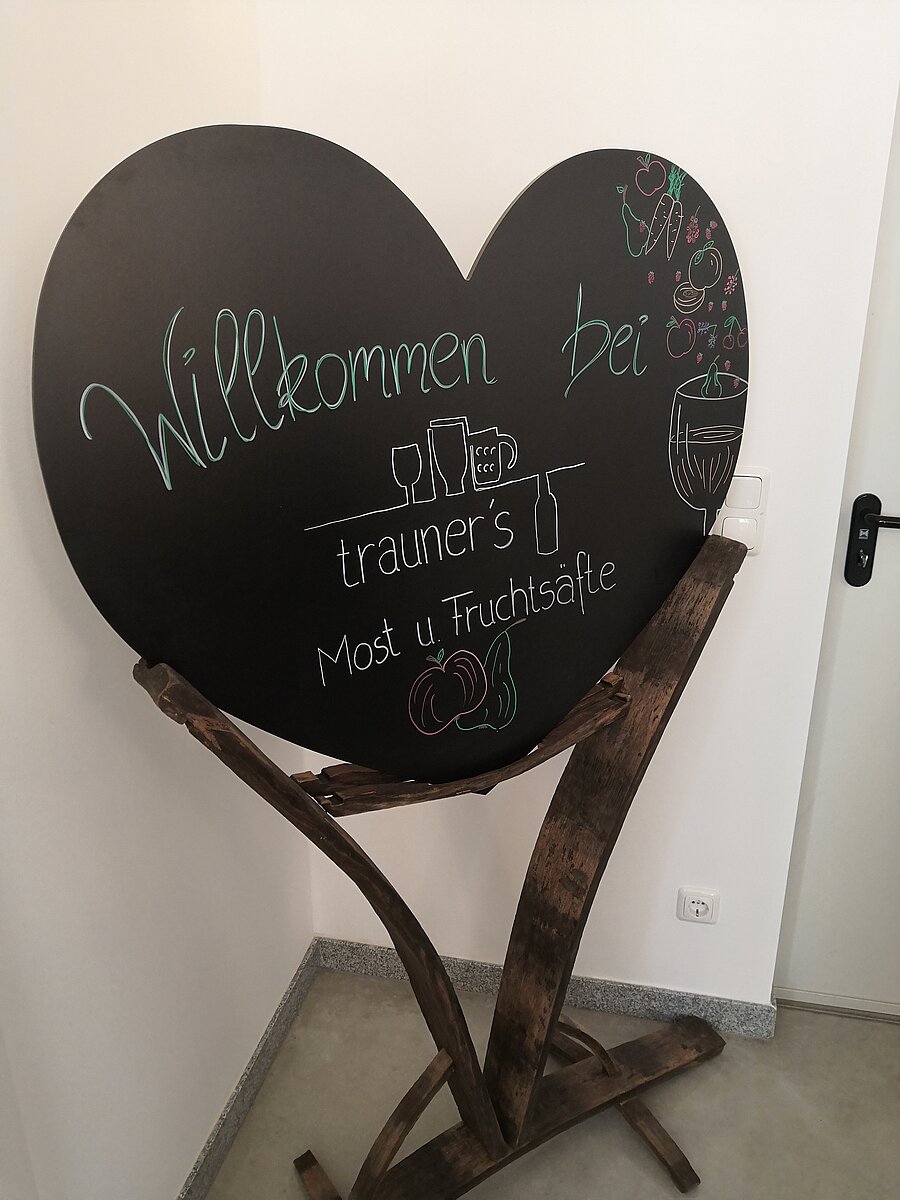 Willkommen bei
trauner's
Most u. Fruchtsäfte